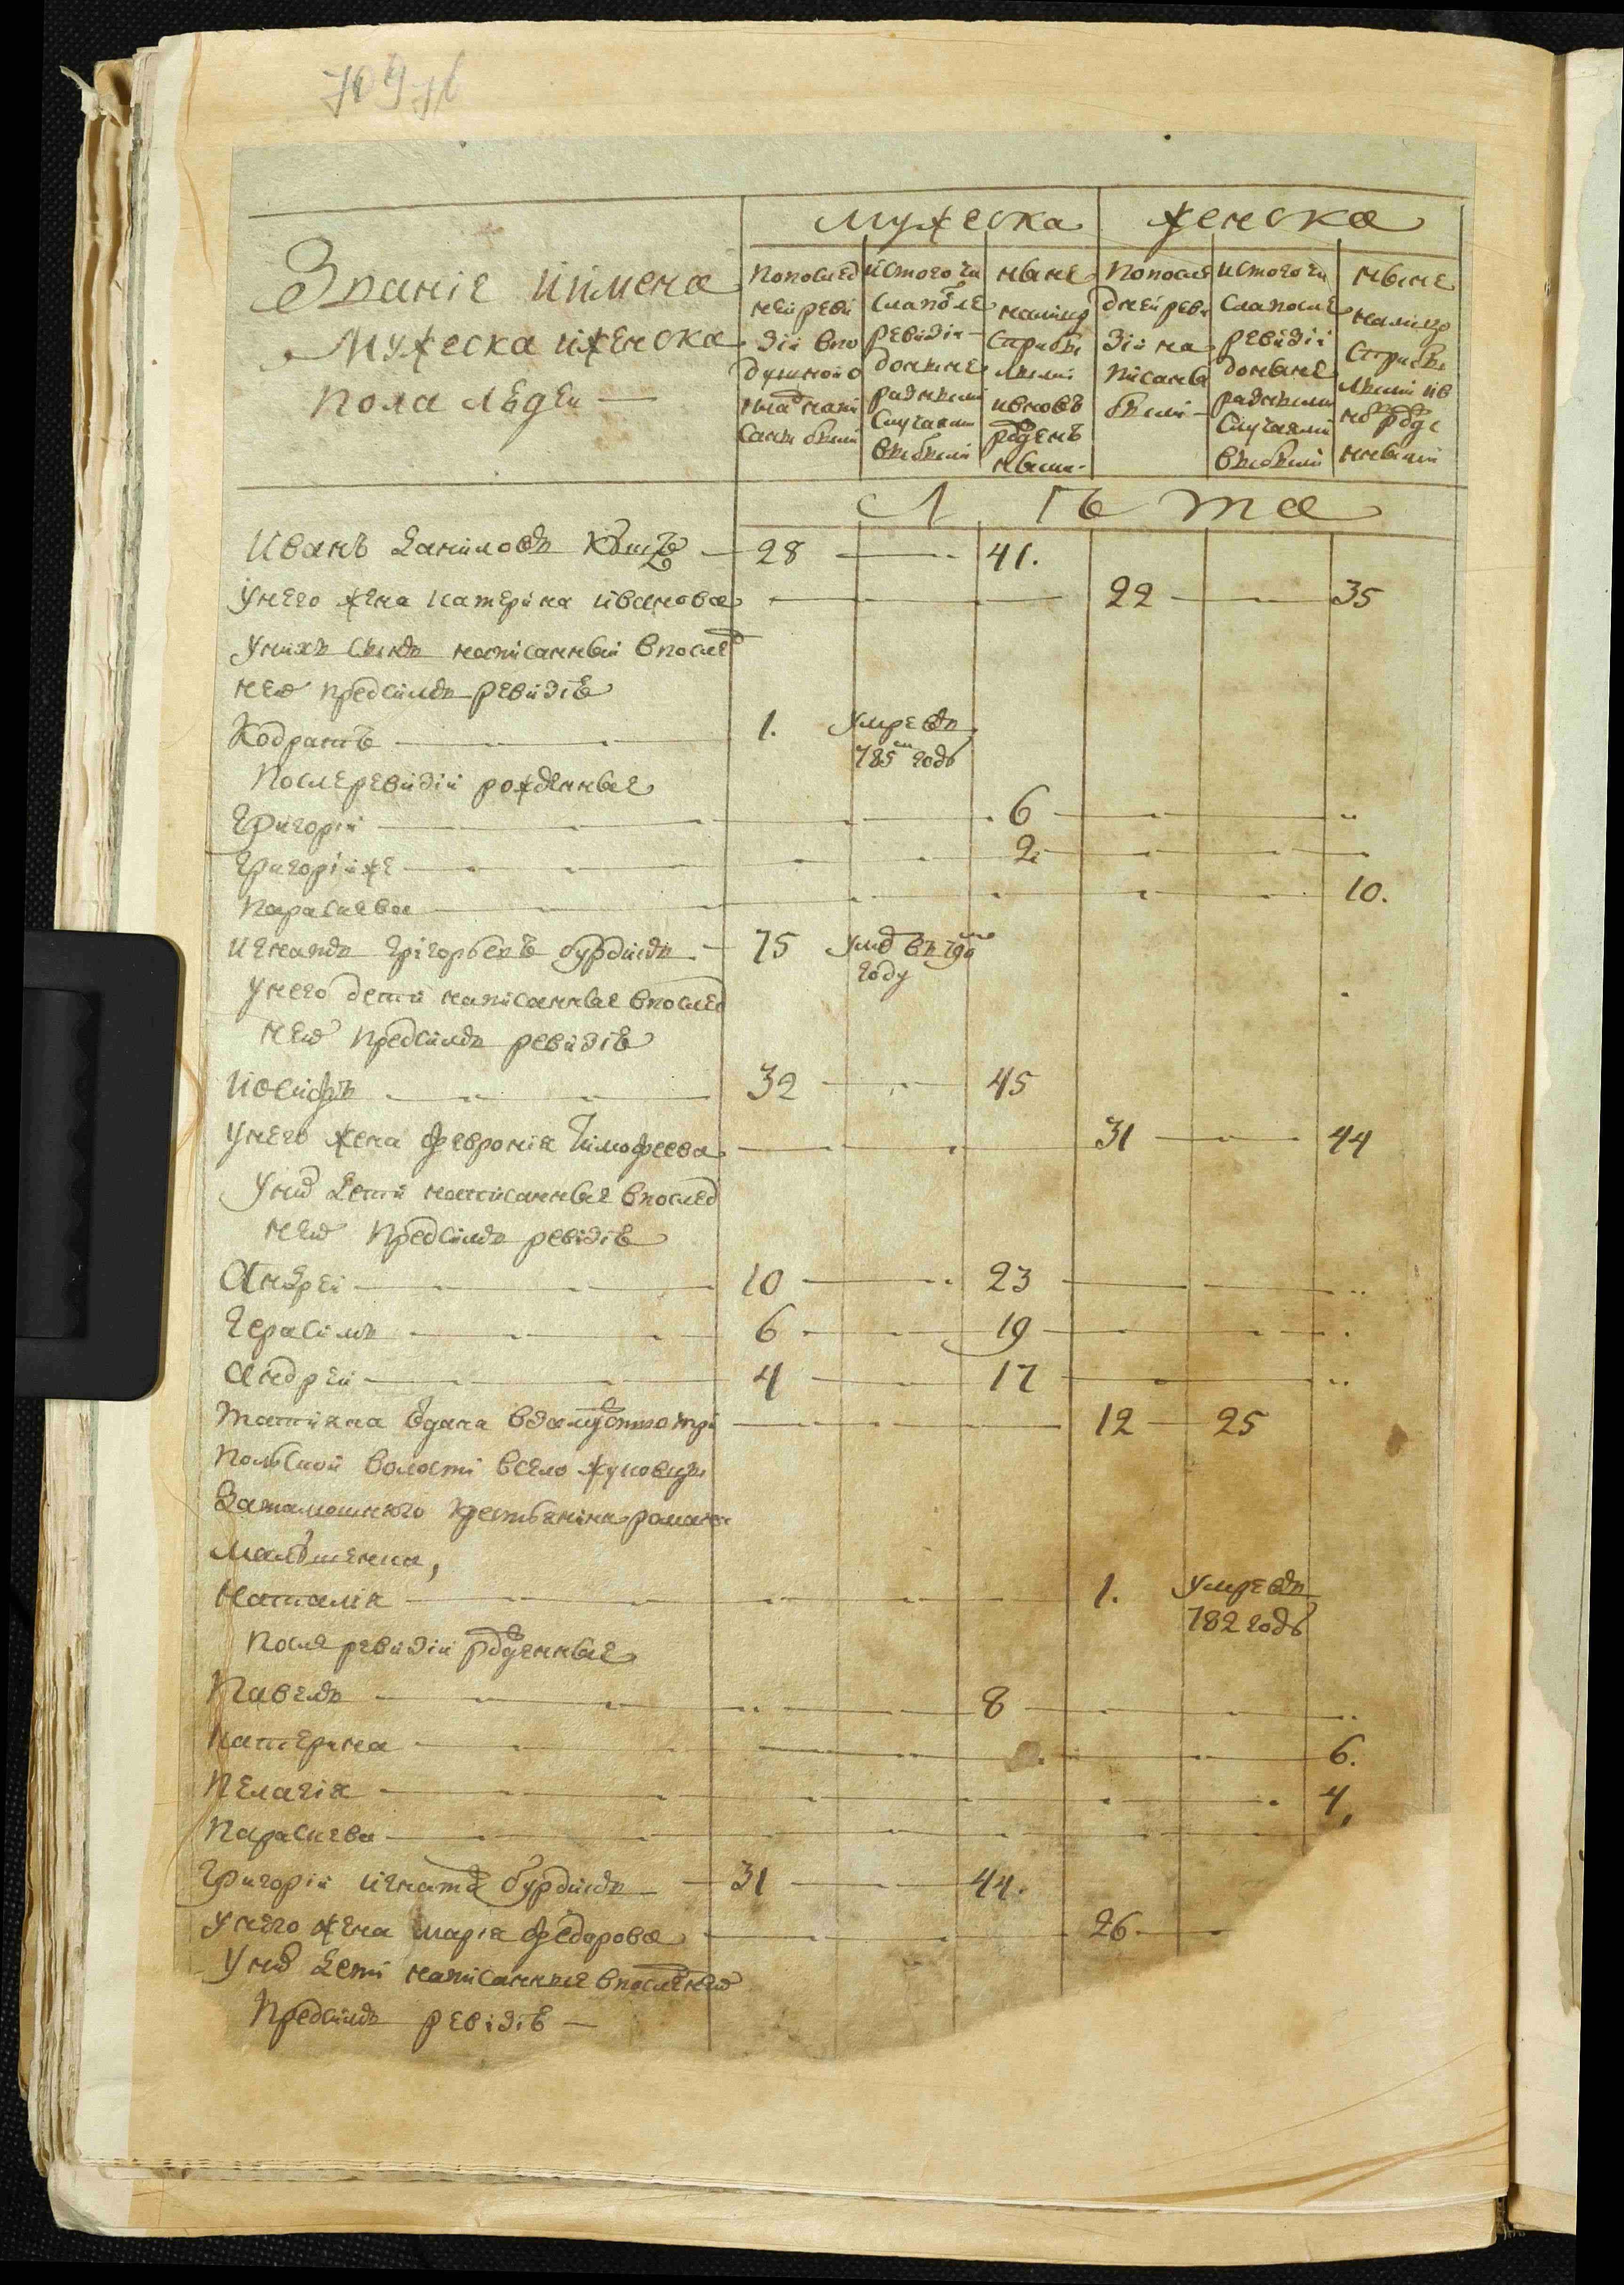 Мужеска женска
Званіе иимена
Мужеска иженска
пола людеи
попослед
неи реви
зіи впо
душной о
Санны были
истого чи
сла после
ревизіи
доныне
разными
Случаями
выбыли
ныне
налицо
Сприбы
лыми
ивновь
рожден
ными
попосле
дней реви
зіи на
писаны
были
истого чи
Сла после
ревизіи
доныне
разными
Случаями
выбыли
ныне
налицо
Сприбы
лыми ив
новь рожде
нными
Л ѣ т а
Иванъ Даниловъ 28 41.
Унего жена катерина иванова 22 35
Унихъ сынъ написанный впослед
ней предсимъ ревизіѣ
Кодратъ 1. Умре въ
785м годѣ
После ревизіи рожденные
Григорій 6
Григорій же 2
Параскева 10.
Игнатъ Григорьевъ бурдинъ 75 Умре въ 790м
году
Унего дети написанные впослед
ней предсимъ ревизіѣ
Иосифъ 32 45
Унего жена Феврония Тимофеева 31 44
Уних дети написанные впослед
ней предсимъ ревизіѣ
Андрей 10 23
Герасимъ 6 19
Андрей 4 17
Татияна вдана взамужство 12 25
польской волости всело жуковцы
Затамошнего крестьянина романа
Наталія 1. Умре въ
782 годѣ
После ревизіи рожденные
Павелъ 8
Катерина 6.
Пелагія 4,
Параскева
Григорій игнатов бурдинъ 31 44.
Унего жена мария Федорова 26
Уних дети написанные впоследней
предсимъ ревизіѣ